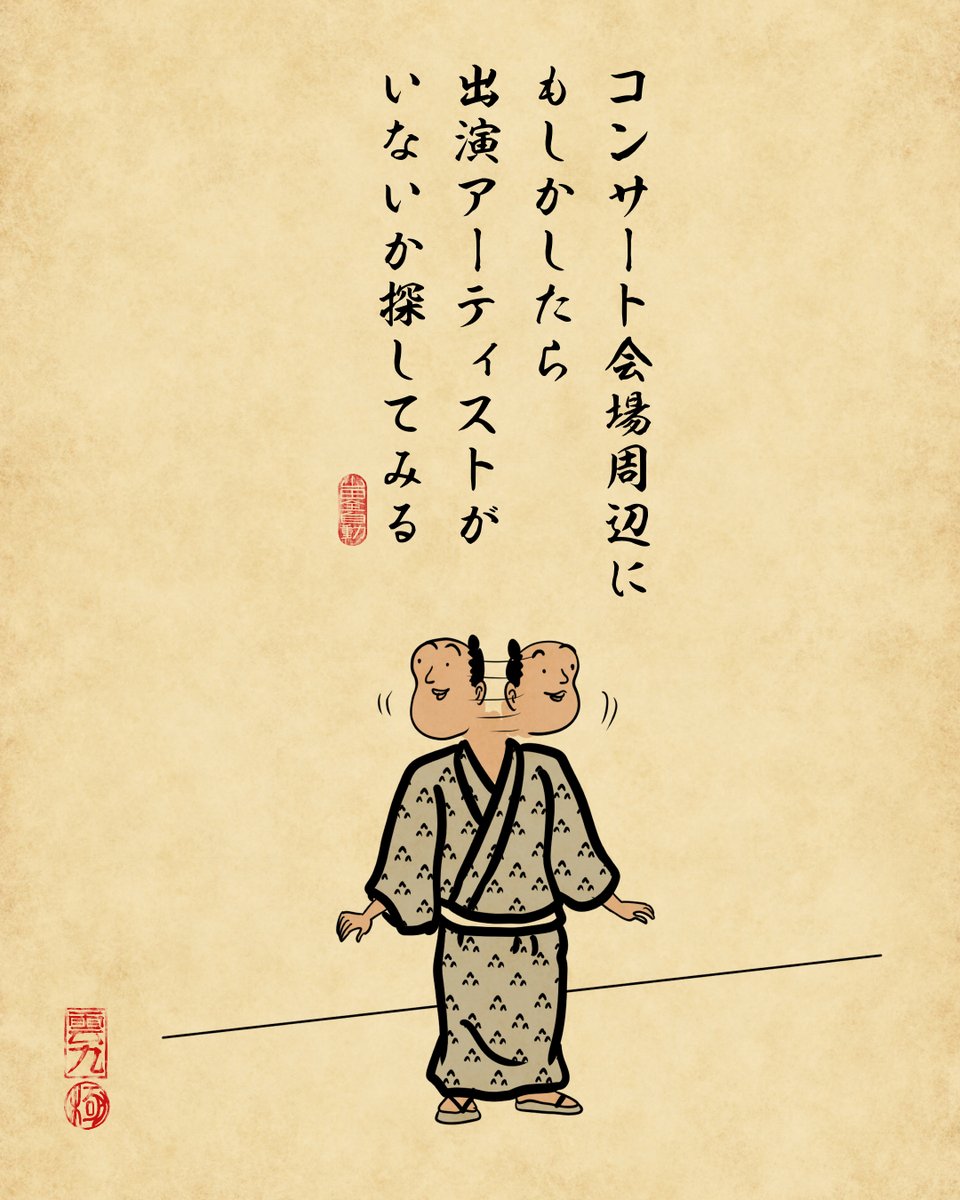 コンサート会場周辺に
もしかしたら
出演アーティストが
いないか探してみる
雲九
極